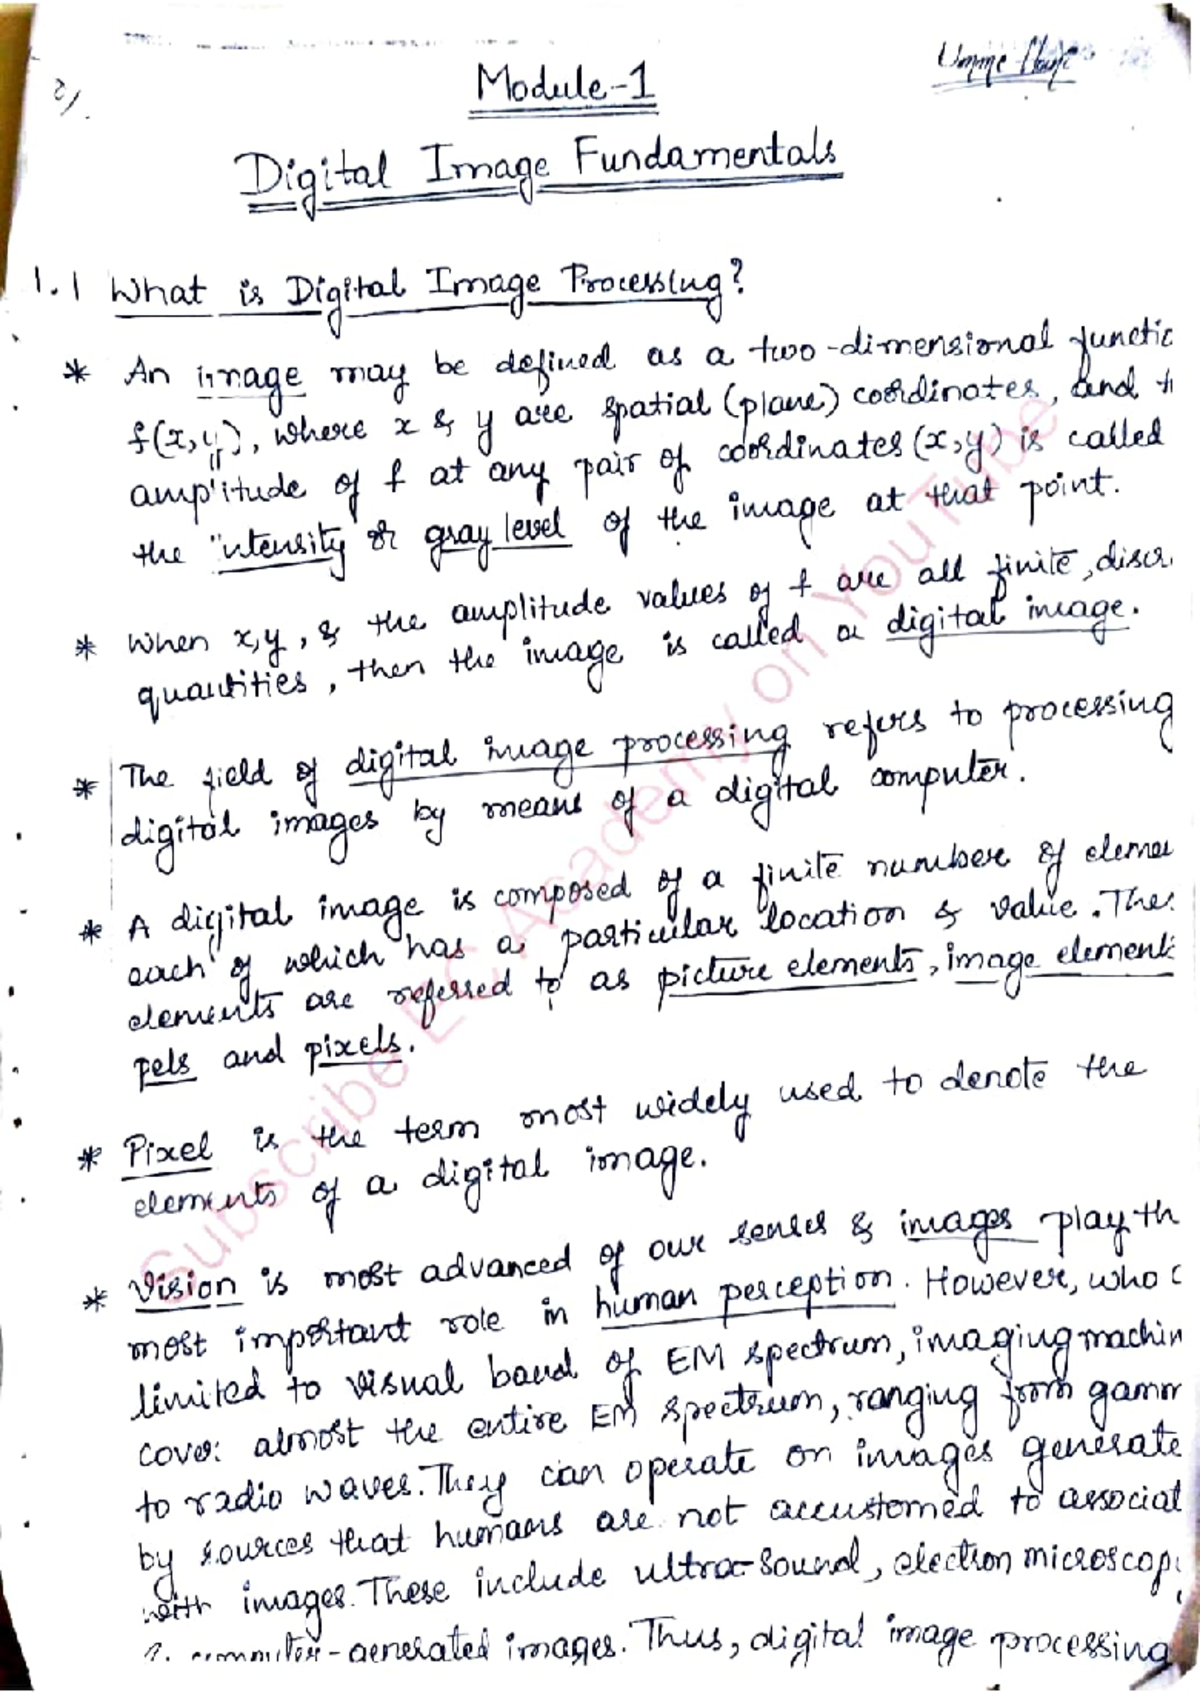 2/.
Module-1
Digital Image Fundamentals
1.1 What is Digital Image Processing?
* An image may be defined as a two-dimensional functio
f(x,y), where x & y are spatial (plane) coordinates, and th
amplitude of f at any pair of coordinates (x,y) is called
the intensity or gray level of the image at that point.
* When x,y, & the amplitude values of f are all finite, discr
quantities, then the image is called a digital image.
* The field of digital image processing refers to processing
digital images by means of a digital computer.
* A digital image is composed of a finite number of elemen
each of which has a particular location & value. Thes
elements are referred to as picture elements, image elements
pels and pixels.
* Pixel is the term most widely used to denote the
elements of a digital image.
* Vision is most advanced of our senses & images play th
most important role in human perception. However, who
limited to visual band of EM spectrum, imaging machin
cover almost the entire EM spectrum, ranging from gamm
to radio waves. They can operate on images generate
by sources that humans are not accustomed to associat
with images. These include ultra-sound, electron microscop
& computer-generated images. Thus, digital image processing
Subscribe EC Academy on YouTube